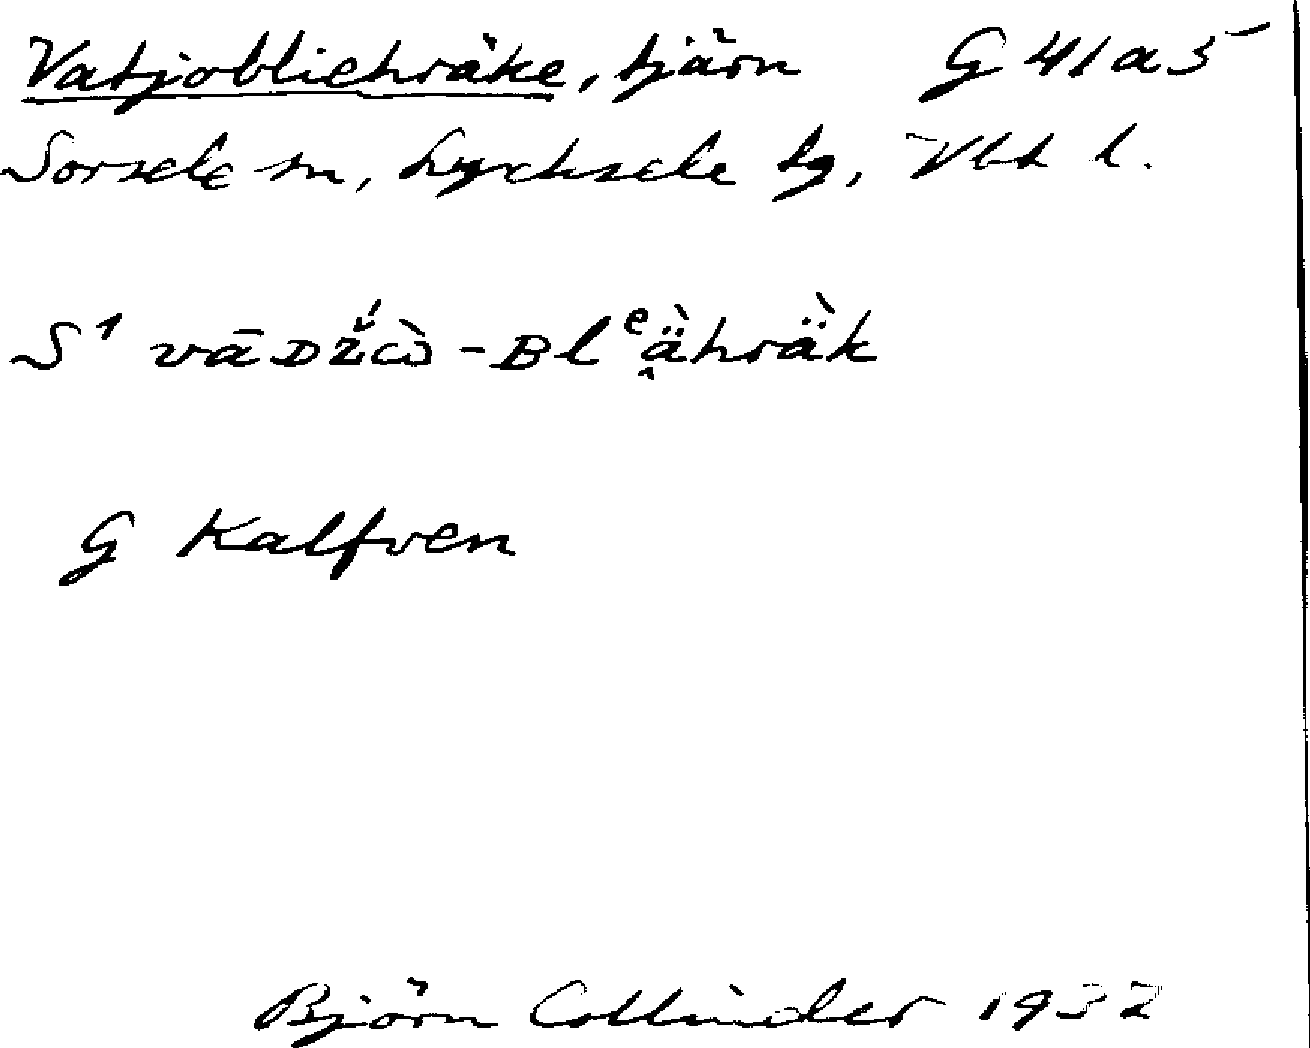 Vatjobliehräke, tjärn G 41 a 5
Sorsele sn, Lycksele lg, Vbt l.
S¹ vāᴅž́ὼ-ʙlᵉä̭̀hrä̀k
G Kalfven
Björn Collinder 1932